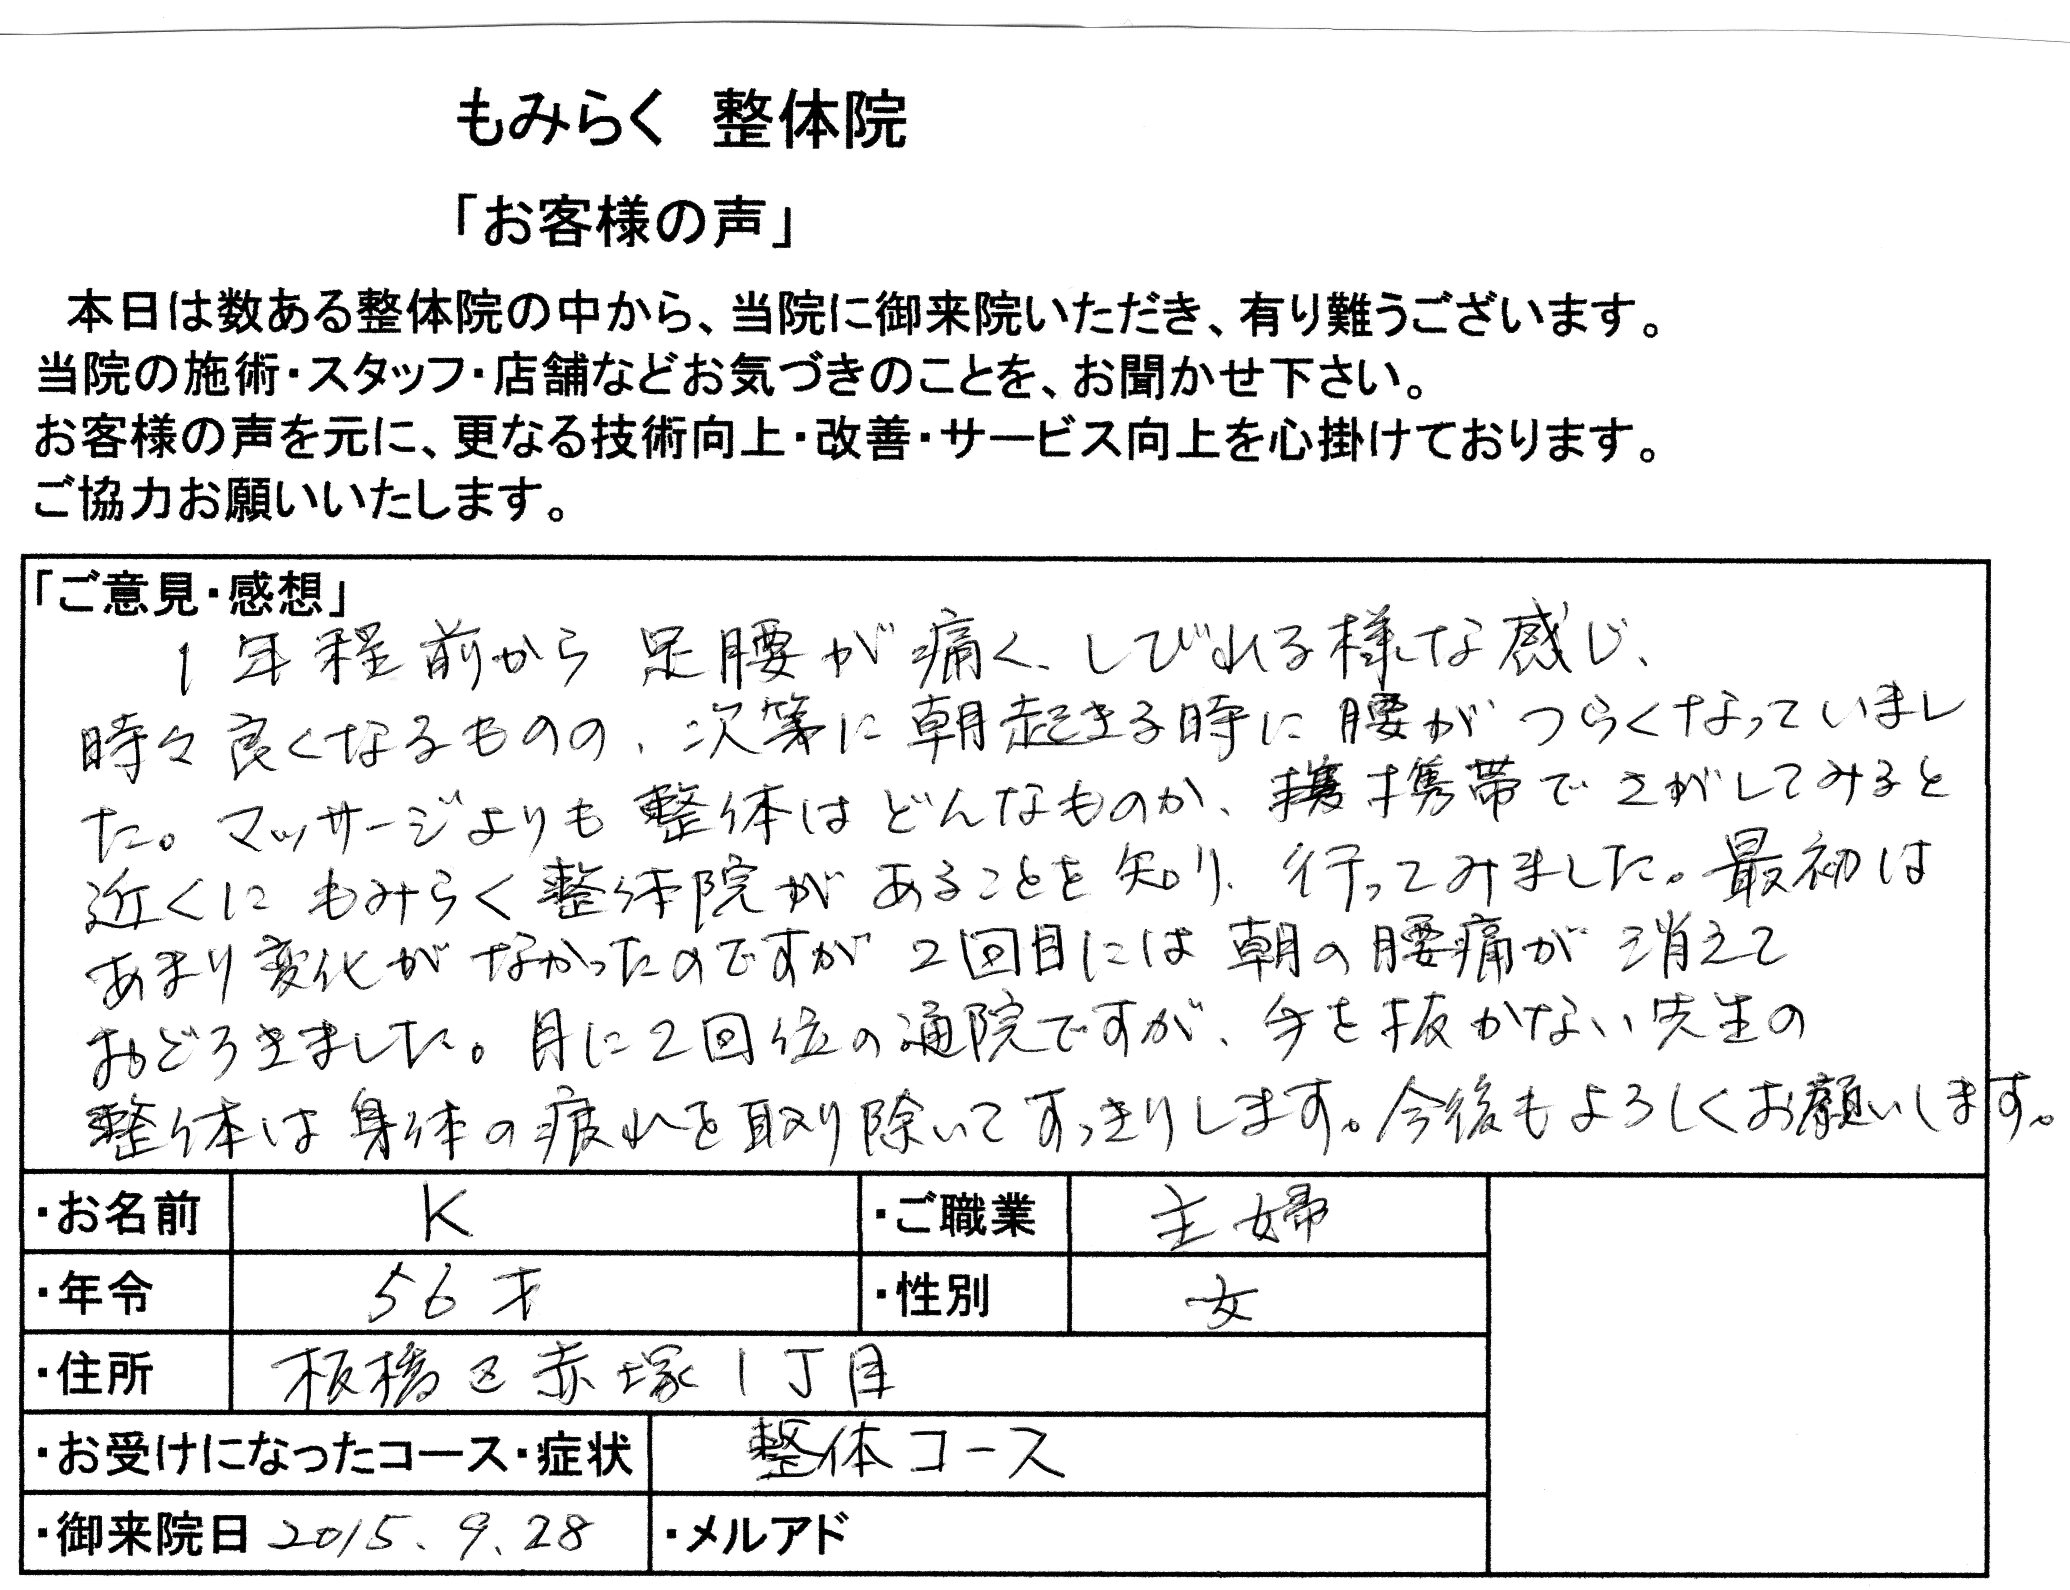 もみらく 整体院
「お客様の声」
本日は数ある整体院の中から、当院に御来院いただき、有り難うございます。
当院の施術・スタッフ・店舗などお気づきのことを、お聞かせ下さい。
お客様の声を元に、更なる技術向上・改善・サービス向上を心掛けております。
ご協力お願いいたします。
「ご意見・感想」
1年程前から足腰が痛く、しびれる様な感じ、
時々良くなるものの、次第に朝起きる時に腰がつらくなっていまし
た。マッサージよりも整体はどんなものか、携帯でさがしてみると
近くにもみらく整体院があることを知り、行ってみました。最初は
あまり変化がなかったのですが2回目には朝の腰痛が消えて
おどろきました。月に2回位の通院ですが、手を抜かない先生の
整体は身体の疲れを取り除いてすっきりします。今後もよろしくお願いします。
・お名前 K ・ご職業 主婦
・年令 56才 ・性別 女
・住所 板橋区赤塚1丁目
・お受けになったコース・症状 整体コース
・御来院日 2015.9.28 ・メルアド